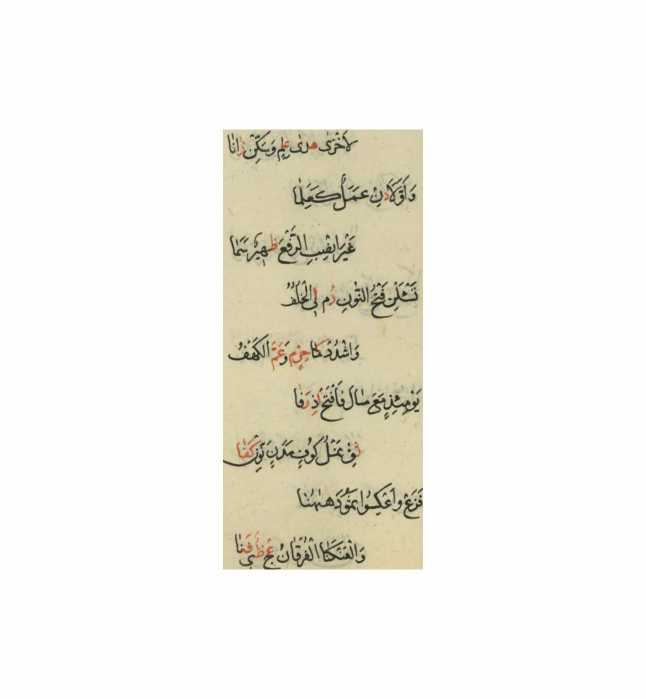 لَاخْرَى هدى علم وَسَكِّنْ زانا
وَأَوَّلَا دِنْ عَمَلٌ كَعَلِمَا
غَيْرَ انصِبِ الرَّفْعَ ظَهِيرٌ رَسَمَا
تَسْئَلْنِ فَتْحُ النُّونِ دُم لِي الْخُلْفُ
وَاشْدُدْ كَمَا حِرْمٍ وَعَمَّ الْكَهْفُ
يَوْمِئِذٍ مَعَ سَالَ فَافْتَحْ إِذ رَفَا
ثِقْ نَمْلُ كُوفٍ مَدَنٍ نَوِّنْ كَفَا
فَزَعٍ وَاعْكِسُوا ثَمُودَ هٰهُنَا
وَالْعَنْكَبَا الْفُرْقَانُ عُج ظُبًى فَنَا